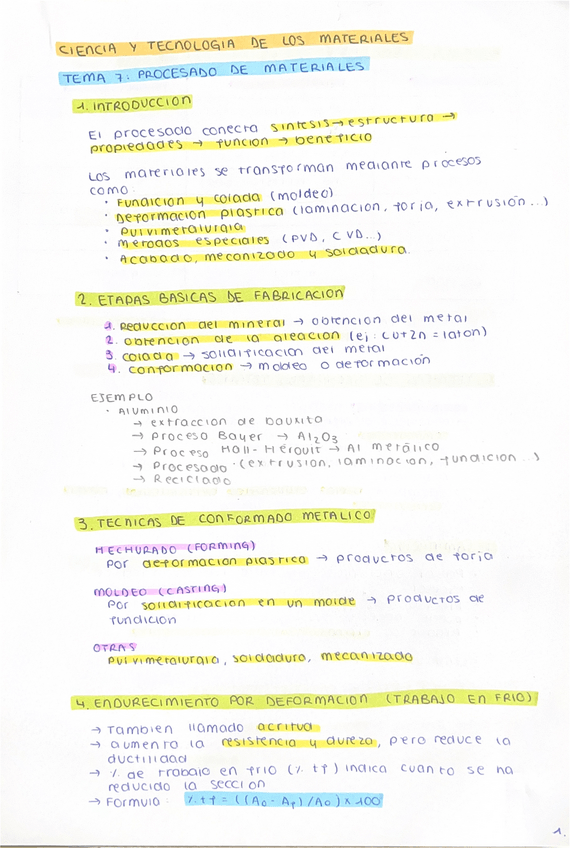 CIENCIA Y TECNOLOGIA DE LOS MATERIALES
TEMA 7: PROCESADO DE MATERIALES
1. INTRODUCCION
El procesado conecta síntesis → estructura →
propiedades → función → beneficio
Los materiales se transforman mediante procesos
como:
· Fundición y colada (moldeo)
· Deformación plástica (laminación, forja, extrusión...)
· Pulvimetalurgia
· Metodos especiales (PVD, CVD...)
· Acabado, mecanizado y soldadura.
2. ETAPAS BASICAS DE FABRICACION
1. Reducción del mineral → obtención del metal
2. obtención de la aleación (ej: Cu+Zn = latón)
3. colada → solidificación del metal
4. conformación → moldeo o deformación
EJEMPLO
· ALUMINIO
→ extracción de bauxita
→ Proceso Bayer → Al₂O₃
→ Proceso Hall-Hérovit → Al metálico
→ Procesado · (extrusión, laminación, fundición...)
→ Reciclado
3. TECNICAS DE CONFORMADO METALICO
MECHURADO (FORMING)
Por deformación plástica → productos de forja
MOLDEO (CASTING)
Por solidificación en un molde → productos de
fundición
OTRAS
Pulvimetalurgia, soldadura, mecanizado
4. ENDURECIMIENTO POR DEFORMACION (TRABAJO EN FRIO)
→ También llamado acritud
→ aumenta la resistencia y dureza, pero reduce la
ductilidad
→ % de trabajo en frío (% tf) indica cuánto se ha
reducido la sección
→ Fórmula: % tf = ((A₀ - Af) / A₀) × 100
1.